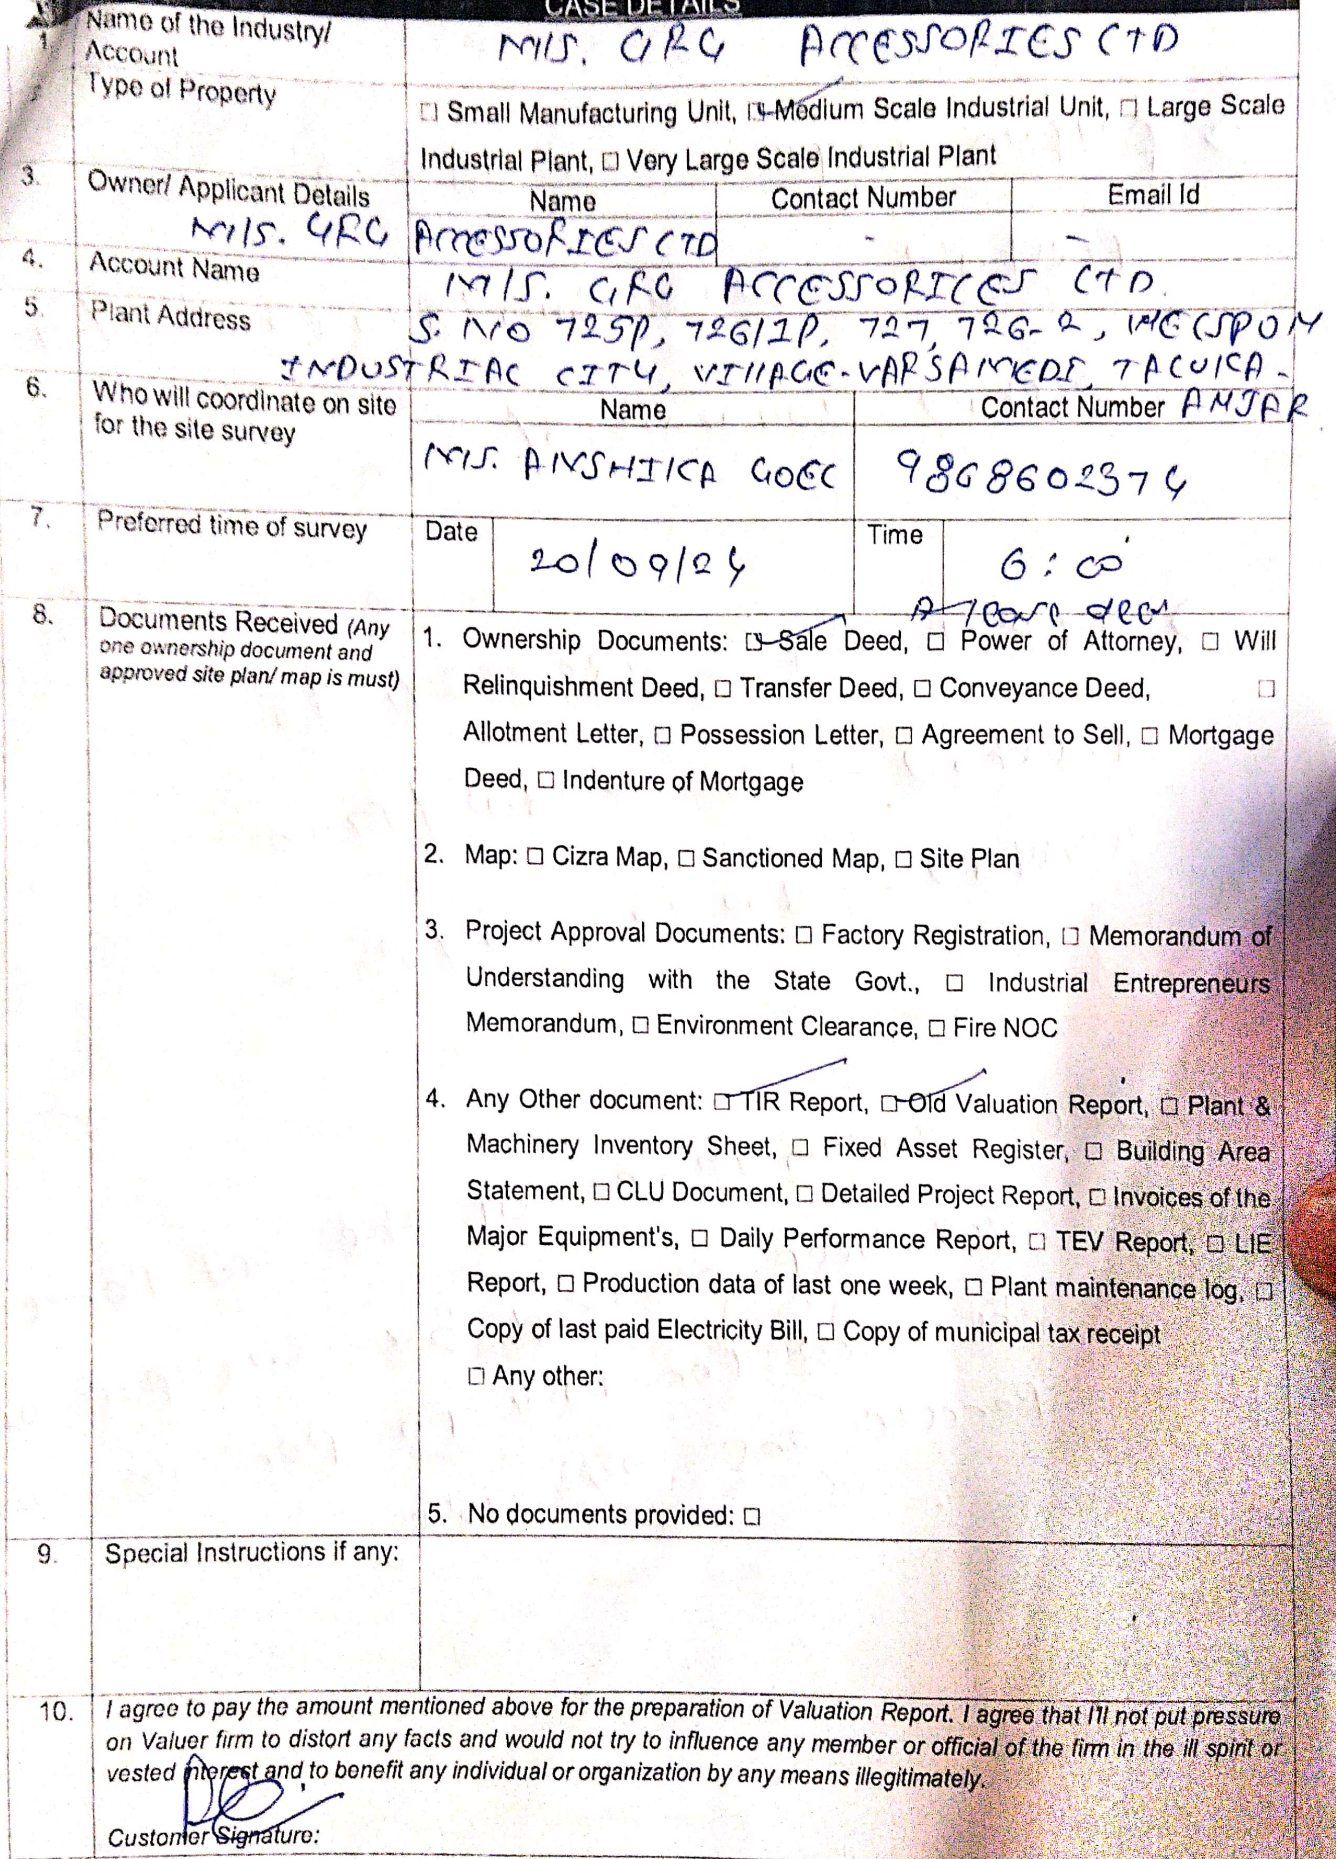 CASE DETAILS
1. Name of the Industry/ Account M/S. GRG ACCESSORIES LTD
Type of Property
☐ Small Manufacturing Unit, ☑ Medium Scale Industrial Unit, ☐ Large Scale
Industrial Plant, ☐ Very Large Scale Industrial Plant
3. Owner/ Applicant Details Name Contact Number Email Id
M/S. GRG ACCESSORIES LTD - -
4. Account Name M/S. GRG ACCESSORICES LTD.
5. Plant Address S. NO 725P, 726/1P, 727, 726-2, WELSPON
INDUSTRIAL CITY, VILLAGE-VARSAMEDI, TALUKA-
6. Who will coordinate on site Name Contact Number ANJAR
for the site survey
M/S. ANSHIKA GOEL 9868602374
7. Preferred time of survey Date 20/09/24 Time 6:00
8. Documents Received (Any
one ownership document and
approved site plan/ map is must)
1. Ownership Documents: ☑ Sale Deed, ☐ Power of Attorney, ☐ Will
Relinquishment Deed, ☐ Transfer Deed, ☐ Conveyance Deed, ☐
Allotment Letter, ☐ Possession Letter, ☐ Agreement to Sell, ☐ Mortgage
Deed, ☐ Indenture of Mortgage
2. Map: ☐ Cizra Map, ☐ Sanctioned Map, ☐ Site Plan
3. Project Approval Documents: ☐ Factory Registration, ☐ Memorandum of
Understanding with the State Govt., ☐ Industrial Entrepreneurs
Memorandum, ☐ Environment Clearance, ☐ Fire NOC
4. Any Other document: ☑ TIR Report, ☑ Old Valuation Report, ☐ Plant &
Machinery Inventory Sheet, ☐ Fixed Asset Register, ☐ Building Area
Statement, ☐ CLU Document, ☐ Detailed Project Report, ☐ Invoices of the
Major Equipment's, ☐ Daily Performance Report, ☐ TEV Report, ☐ LIE
Report, ☐ Production data of last one week, ☐ Plant maintenance log, ☐
Copy of last paid Electricity Bill, ☐ Copy of municipal tax receipt
☐ Any other:
5. No documents provided: ☐
9. Special Instructions if any:
10. I agree to pay the amount mentioned above for the preparation of Valuation Report. I agree that I'll not put pressure
on Valuer firm to distort any facts and would not try to influence any member or official of the firm in the ill spirit or
vested interest and to benefit any individual or organization by any means illegitimately.
Customer Signature: